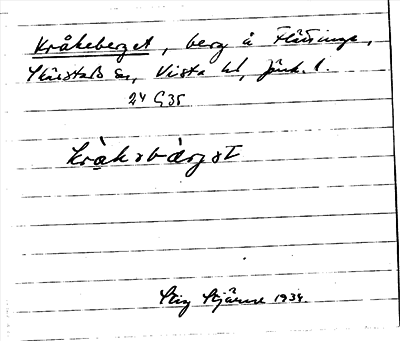 Kråkeberget, berg å Flättinge,
Skärstads sn, Vista hd, Jönk. l.
24 G35
kråkəbärgət
Stig Stjärne 1934.